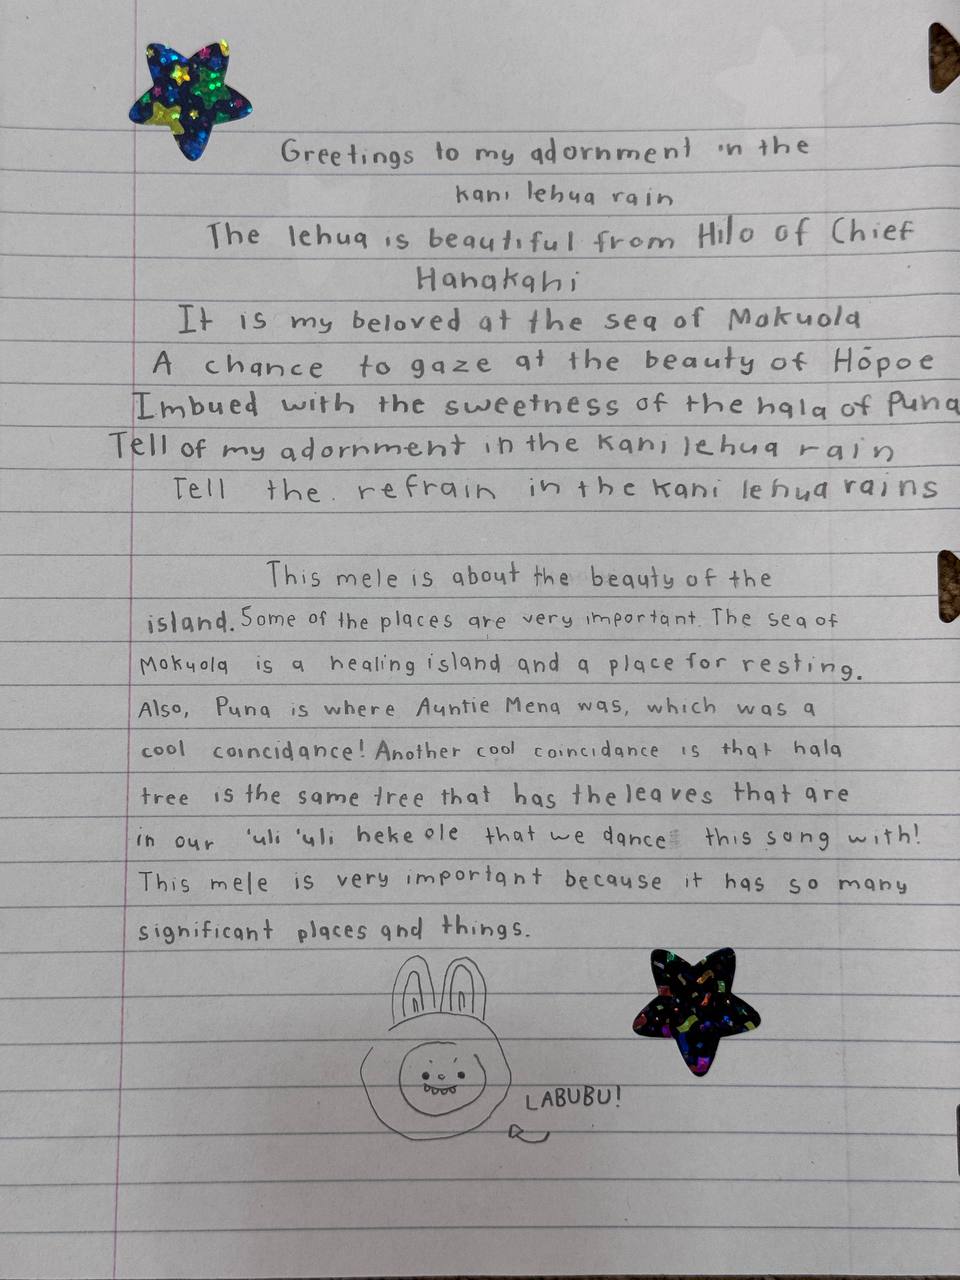 Greetings to my adornment in the
kani lehua rain
The lehua is beautiful from Hilo of Chief
Hanakahi
It is my beloved at the sea of Mokuola
A chance to gaze at the beauty of Hōpoe
Imbued with the sweetness of the hala of Puna
Tell of my adornment in the kani lehua rain
Tell the refrain in the kani lehua rains
This mele is about the beauty of the
island. Some of the places are very important. The sea of
Mokuola is a healing island and a place for resting.
Also, Puna is where Auntie Mena was, which was a
cool coincidance! Another cool coincidance is that hala
tree is the same tree that has the leaves that are
in our 'uli 'uli heke ole that we dance this song with!
This mele is very important because it has so many
significant places and things.
LABUBU!